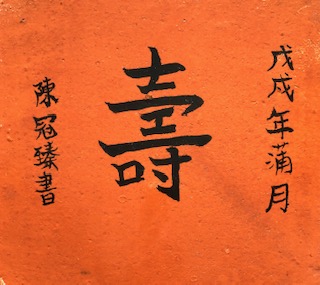 戊戌年蒲月
壽
陳冠臻書